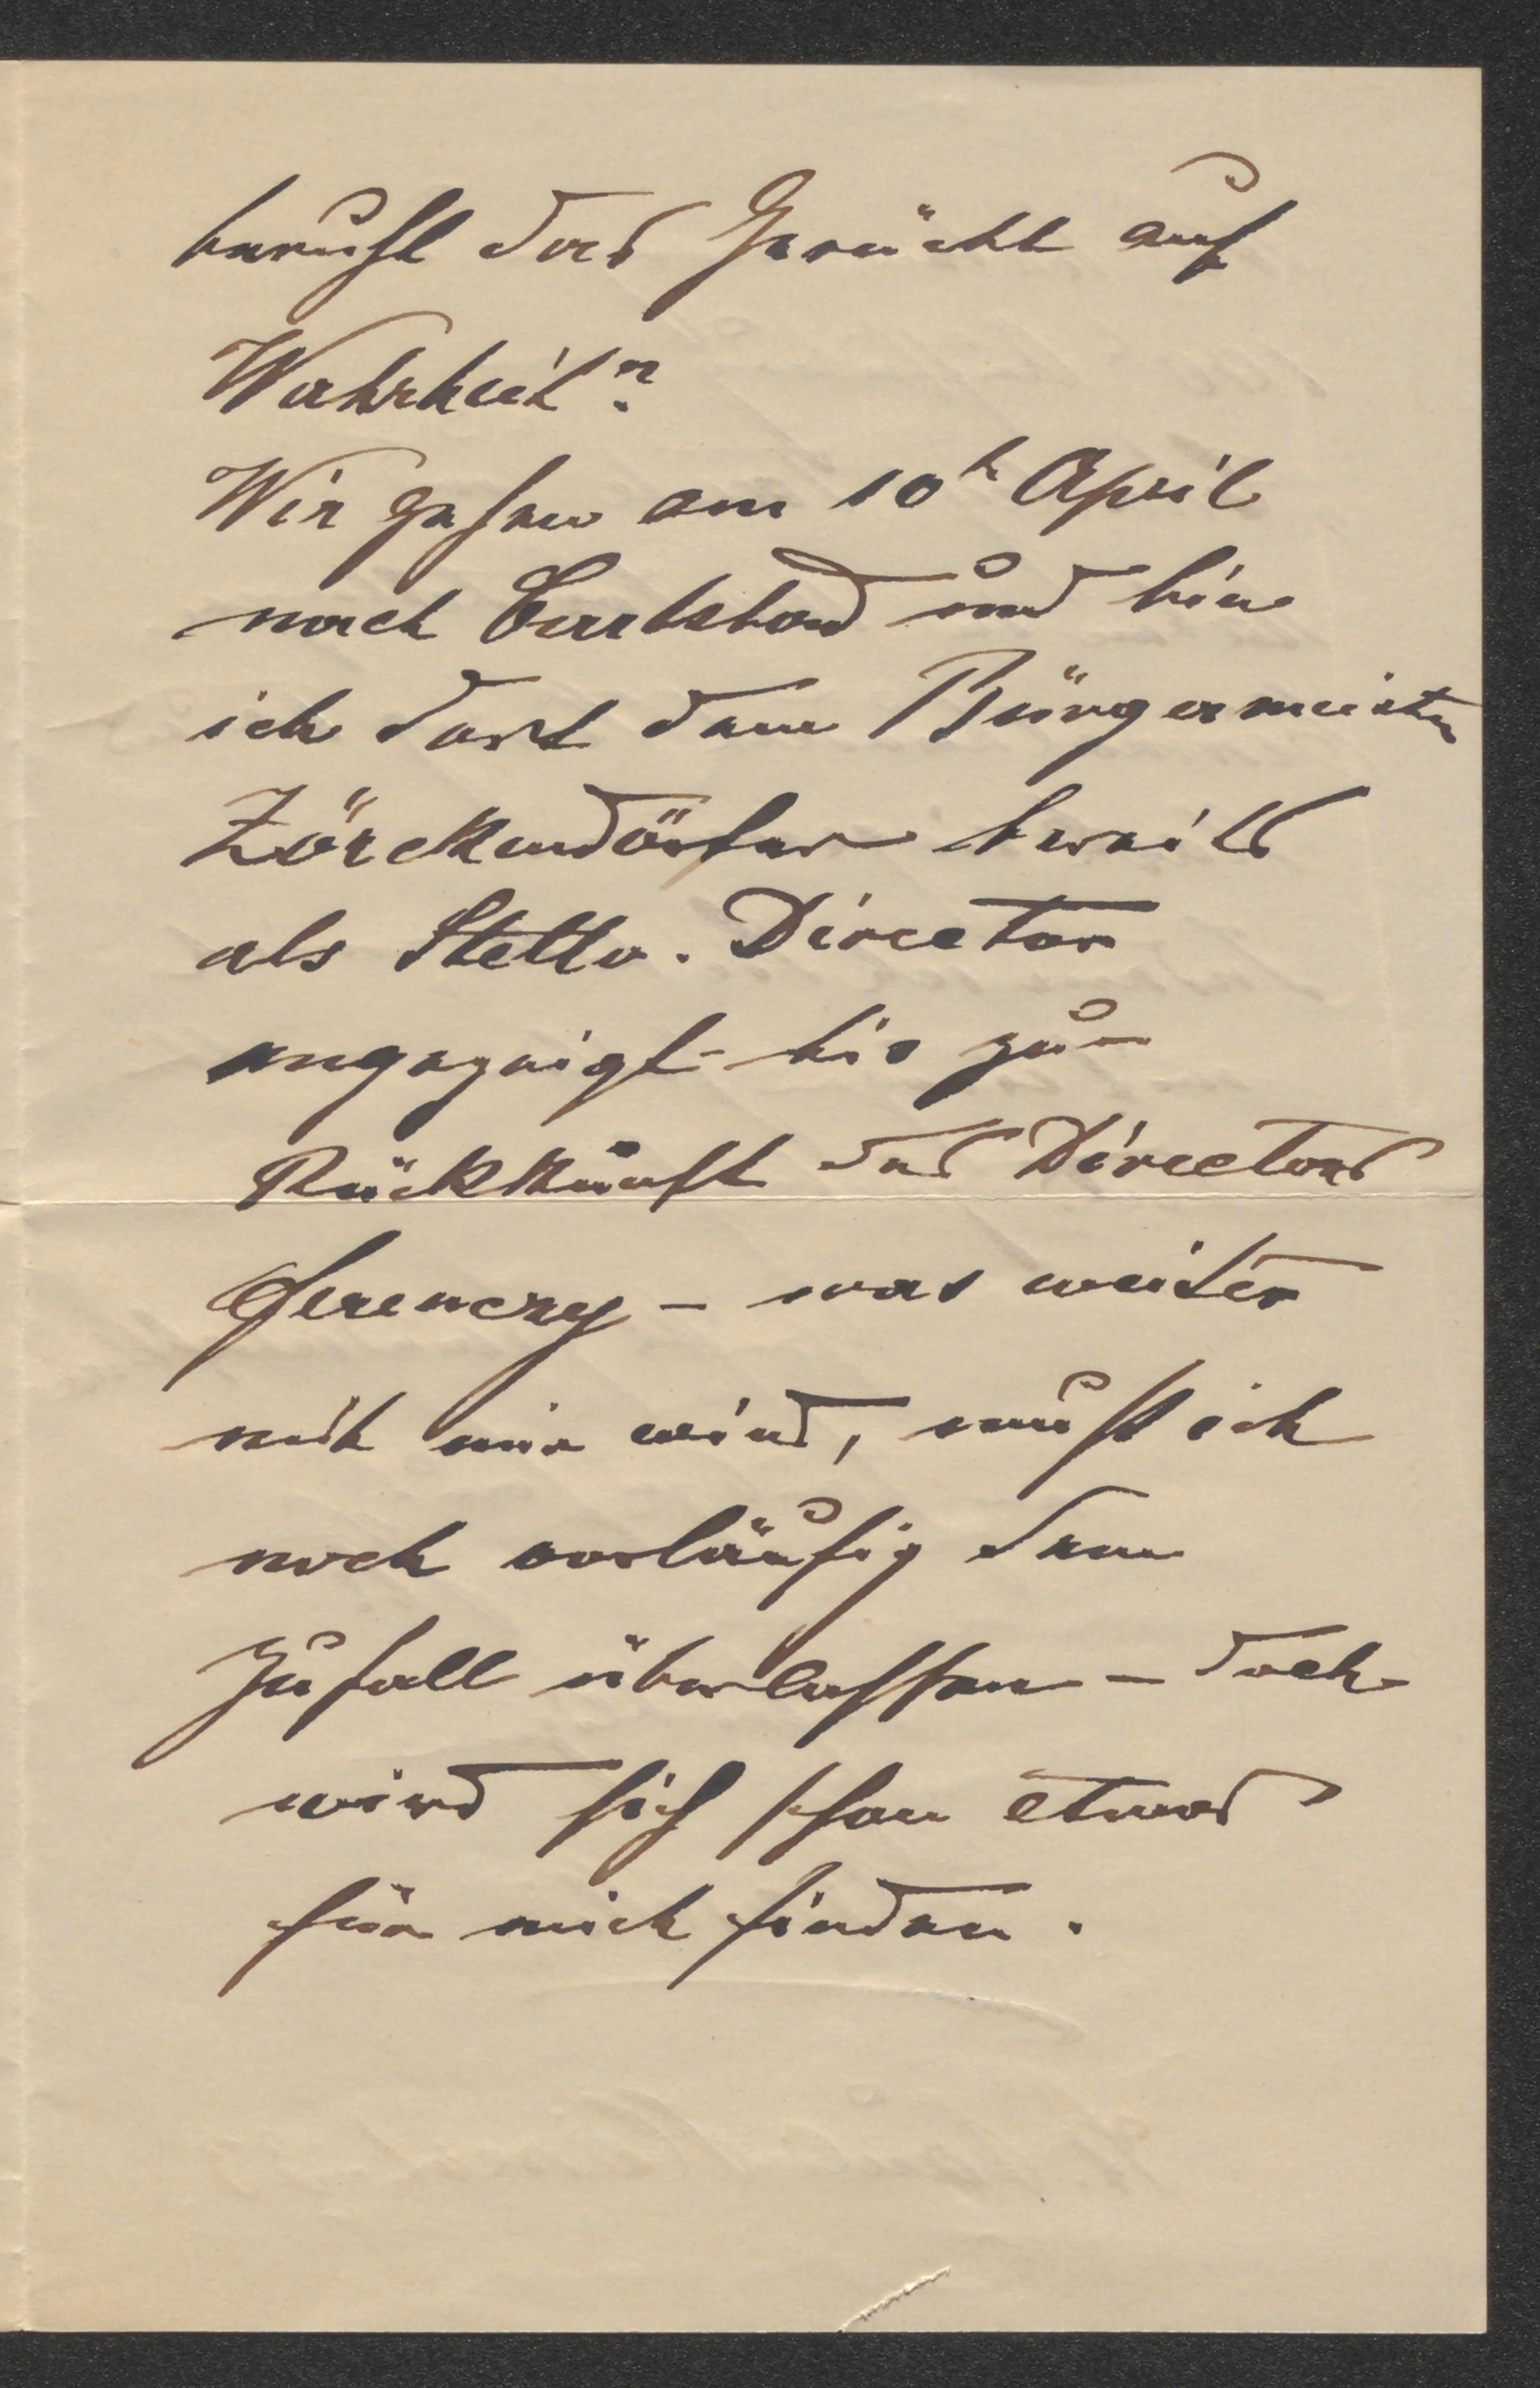 beruht das Gerücht auf
Wahrheit?
Wir gehen am 10t April
nach Carlsbad und bin
ich dort dem Bürgermeister
Zörckendörfer bereits
als Stellv. Director
angezeigt bis zur
Rückkunft des Directors
Ferenczy – was weiter
mit mir wird, muß ich
noch vorläufig dem
Zufall überlassen – doch
wird sich schon etwas
für mich finden.